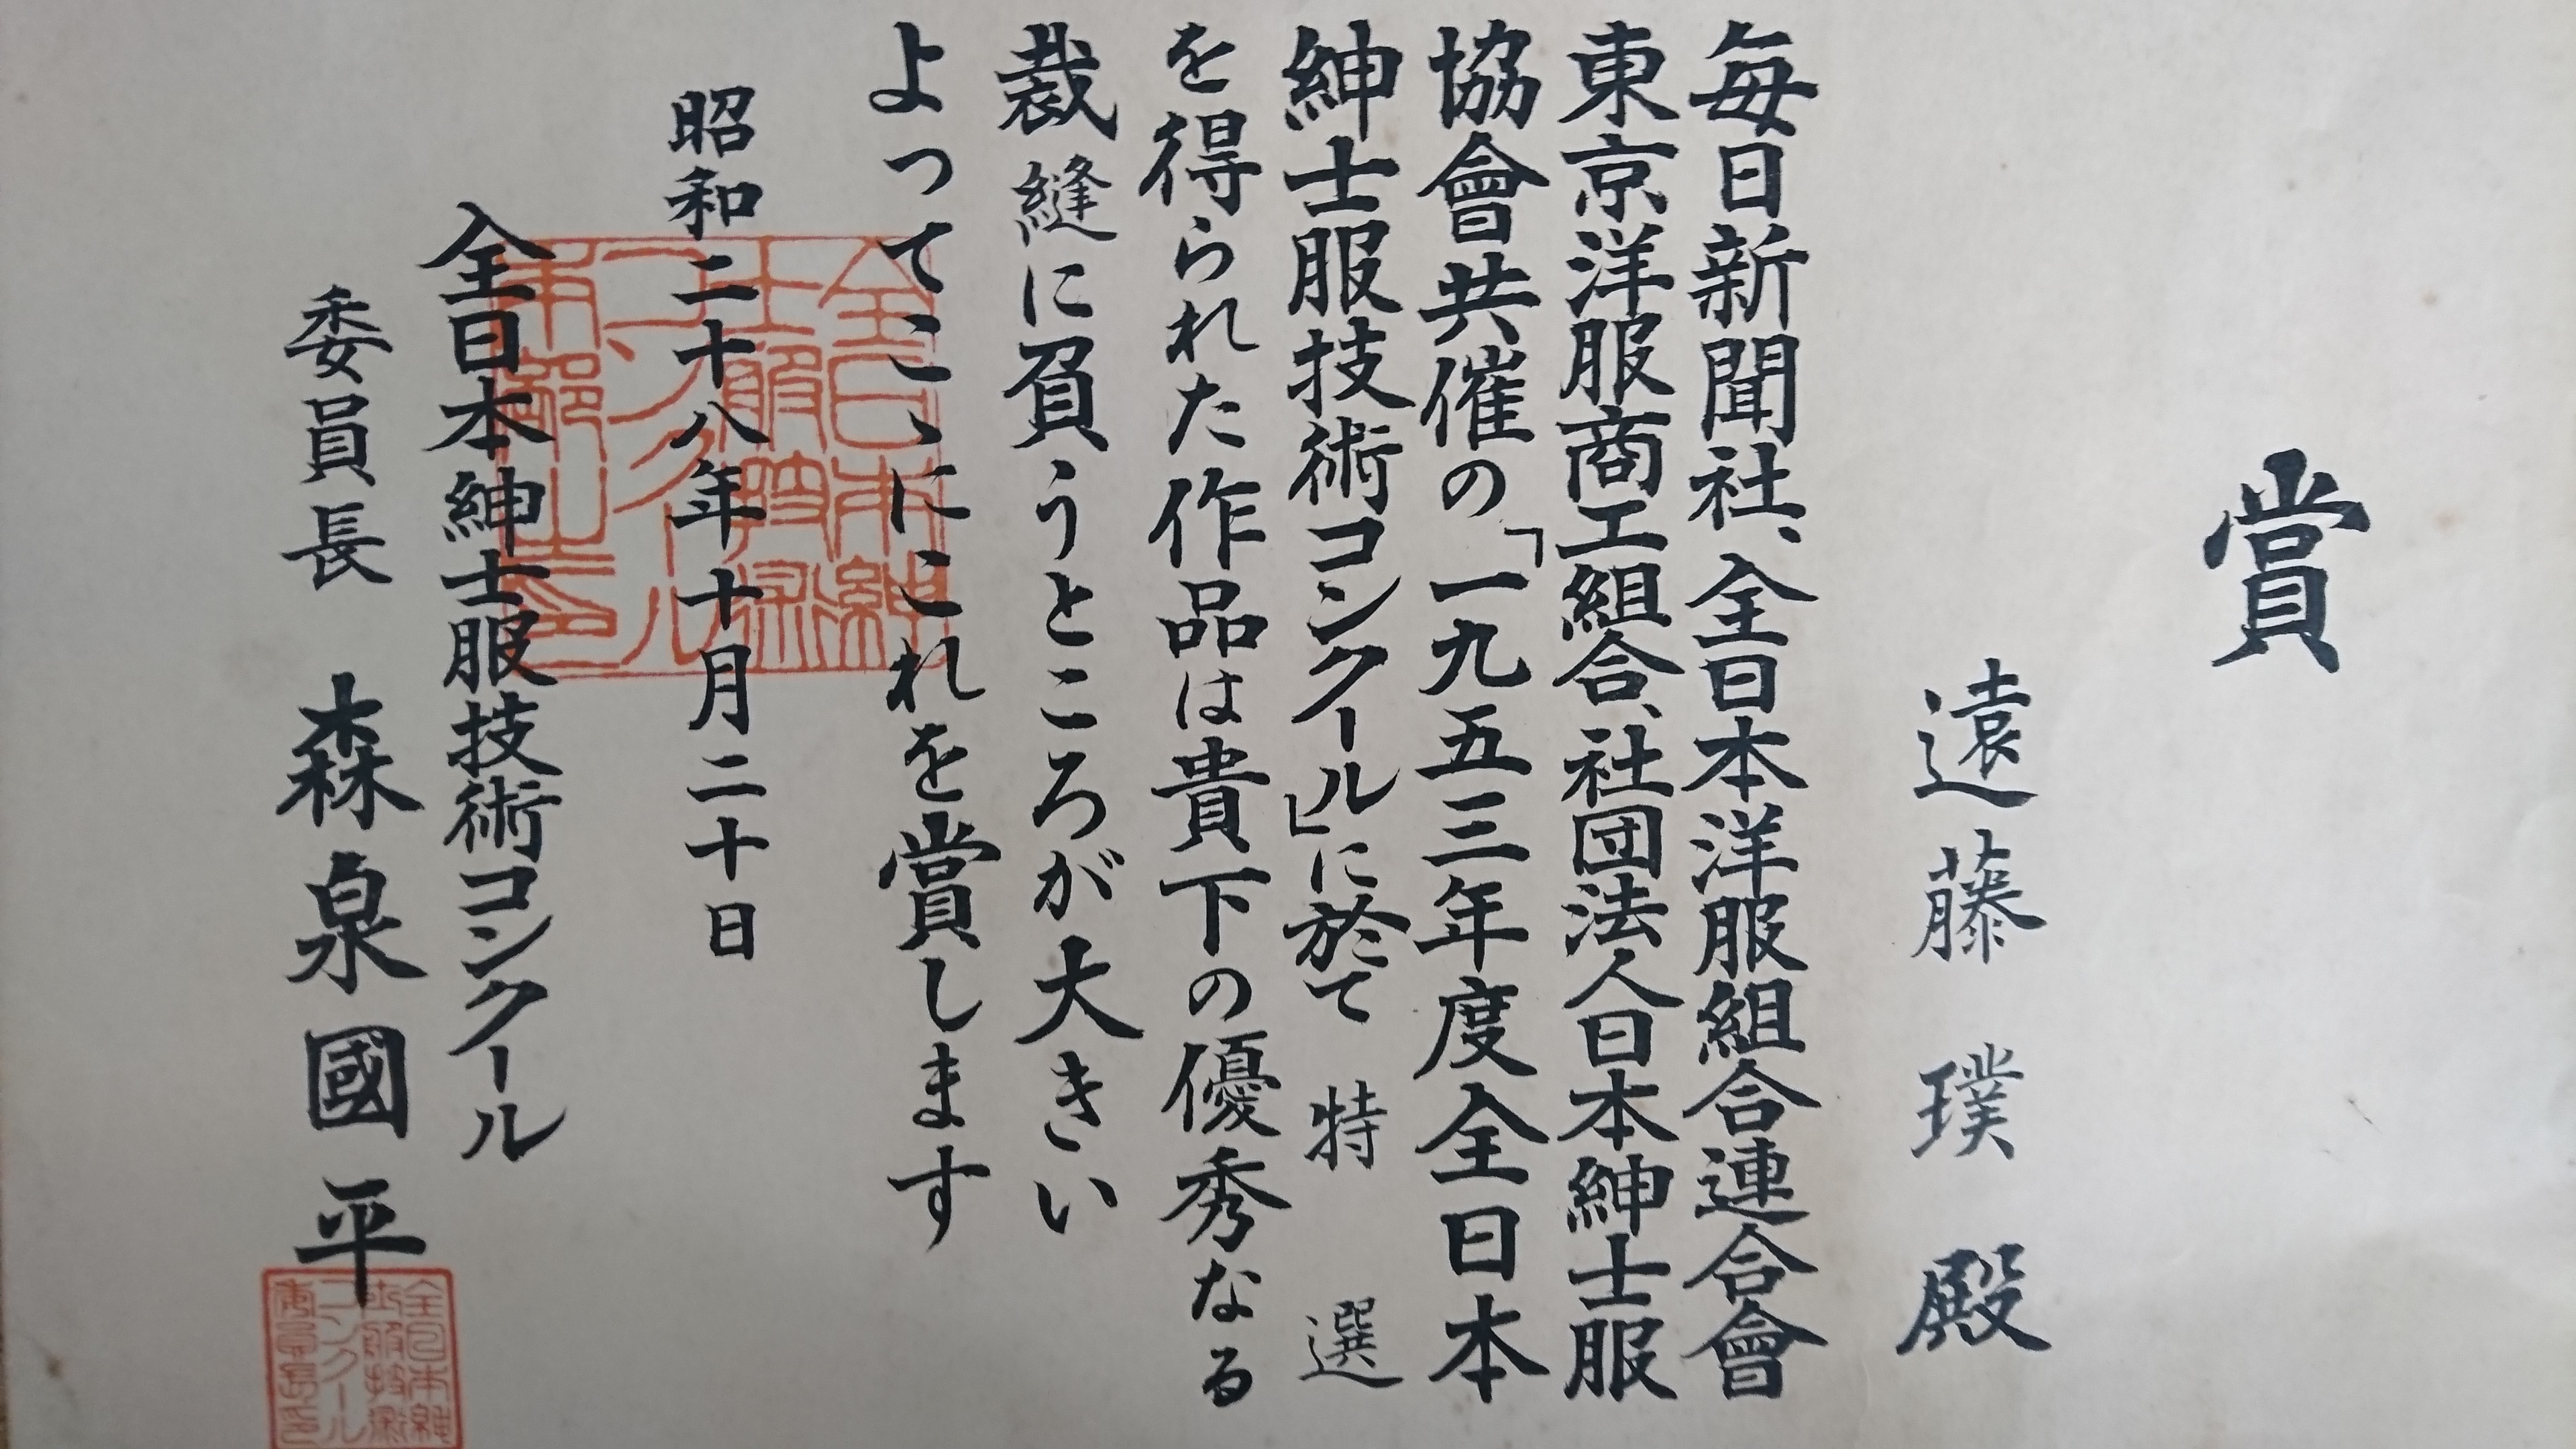 賞
遠藤璞殿
毎日新聞社、全日本洋服組合連合會
東京洋服商工組合、社団法人日本紳士服
協會共催の「一九五三年度全日本
紳士服技術コンクール」に於て 特選
を得られた作品は貴下の優秀なる
裁縫に負うところが大きい
よってこゝにこれを賞します
昭和二十八年十月二十日
全日本紳士服技術コンクール
委員長 森泉國平
全日本紳
士服技術
コンクール
本部之印
全日本紳
士服技術
コンクール
委員長印